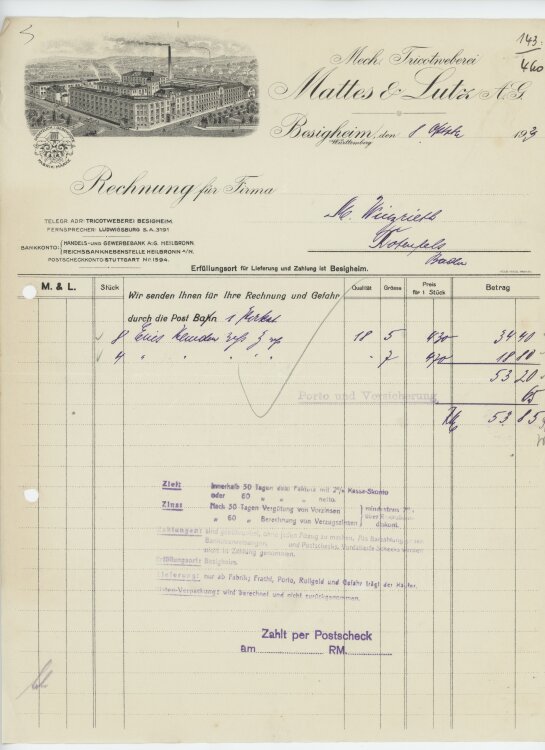 143.
460
Mech. Tricotweberei
Mattes & Lutz A.G.
Besigheim, den 8. 193
Württemberg
Rechnung für Firma
TELEGR. ADR: TRICOTWEBEREI BESIGHEIM.
FERNSPRECHER: LUDWIGSBURG S.A. 3191
BANKKONTO: HANDELS- UND GEWERBEBANK A:G. HEILBRONN.
REICHSBANKNEBENSTELLE HEILBRONN A/N.
POSTSCHECKKONTO STUTTGART Nr. 1594.
M.
Rotenfels
Baden
Erfüllungsort für Lieferung und Zahlung ist Besigheim.
M. & L. Stück Qualität Grösse Preis für 1 Stück Betrag
Wir senden Ihnen für Ihre Rechnung und Gefahr
durch die Post Bahn 1
8 18 5 430 34 40
4 " " " " " 7 470 18 80
53 20
Porto und Versicherung 65
53 85
Ziel: Innerhalb 30 Tagen dato Faktura mit 2% Kassa-Skonto
oder 60 " " " netto.
Zins: Nach 30 Tagen Vergütung von Vorzinsen
" 60 " Berechnung von Verzugszinsen
mindestens 7%
Zahlungen: sind ohne jeden Abzug zu machen. Als Barzahlung
und Postschecks. Vordatierte Schecks werden
nicht in Zahlung genommen.
Erfüllungsort: Besigheim.
Lieferung: nur ab Fabrik; Fracht, Porto, Rollgeld und Gefahr trägt der Käufer.
Kisten-Verpackung: wird berechnet und nicht zurückgenommen.
Zahlt per Postscheck
am RM.